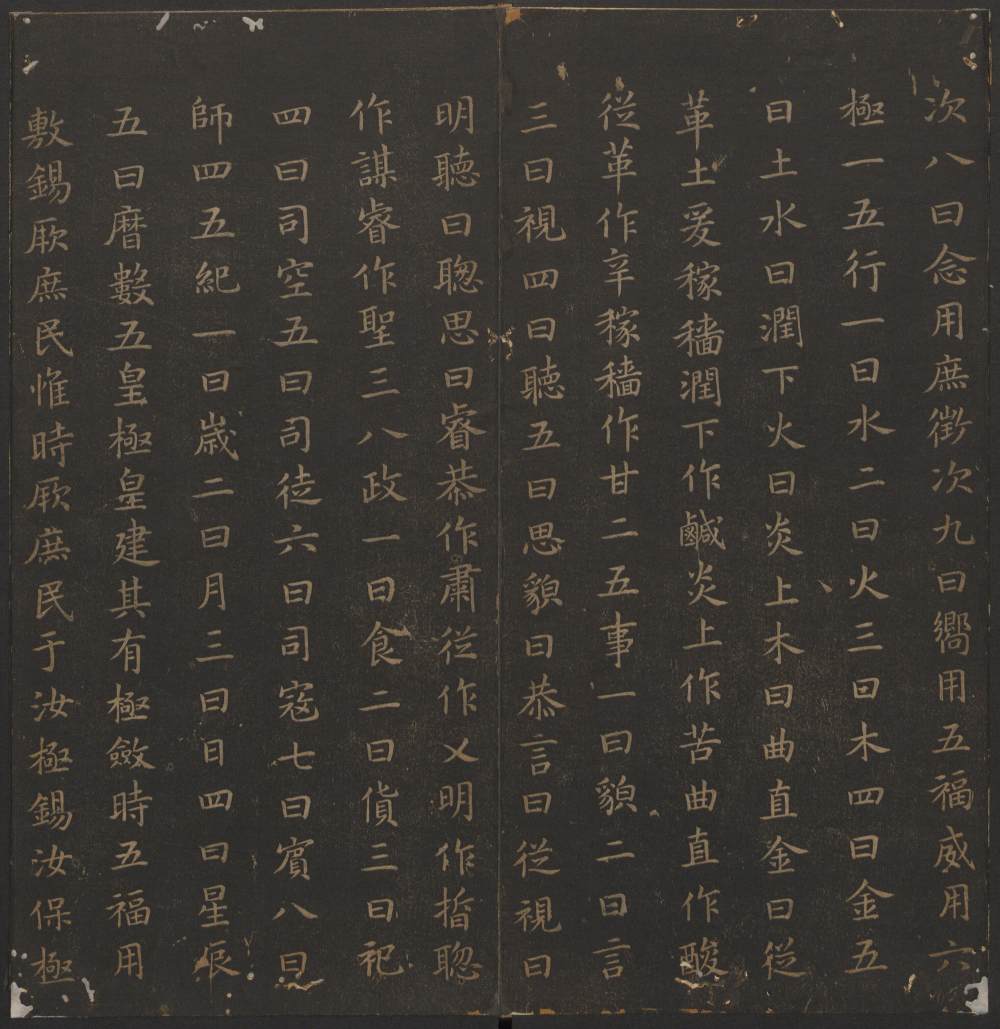 次八曰念用庶徴次九曰嚮用五福威用六
極一五行一曰水二曰火三曰木四曰金五
曰土水曰潤下火曰炎上木曰曲直金曰從
革土爰稼穡潤下作鹹炎上作苦曲直作酸
從革作辛稼穡作甘二五事一曰貌二曰言
三曰視四曰聽五曰思貌曰恭言曰從視曰
明聽曰聰思曰睿恭作肅從作乂明作晢聰
作謀睿作聖三八政一曰食二曰貨三曰祀
四曰司空五曰司徒六曰司寇七曰賓八曰
師四五紀一曰歲二曰月三曰日四曰星辰
五曰曆數五皇極皇建其有極斂時五福用
敷錫厥庶民惟時厥庶民于汝極錫汝保極